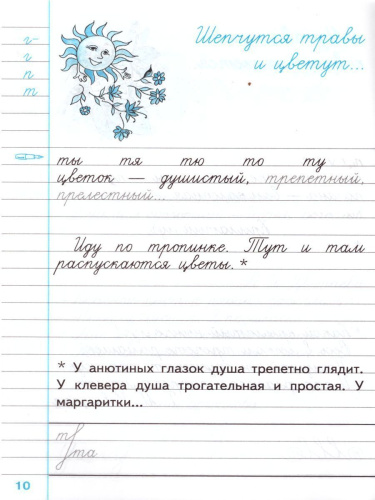 Шепчутся травы
и цветут...
г
г
п
т
ты тя тю то ту
цветок — душистый, трепетный,
прелестный...
Иду по тропинке. Тут и там
распускаются цветы. *
* У анютиных глазок душа трепетно глядит.
У клевера душа трогательная и простая. У
маргаритки...
т
та
10